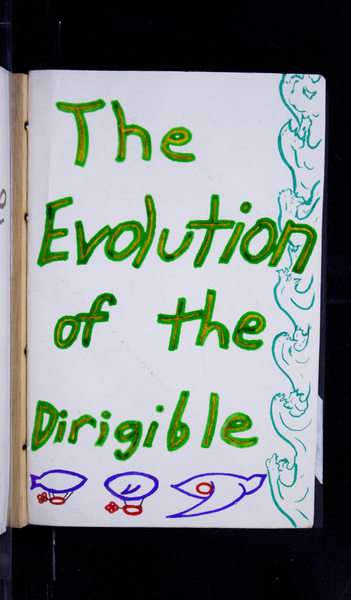 The
Evolution
of the
Dirigible